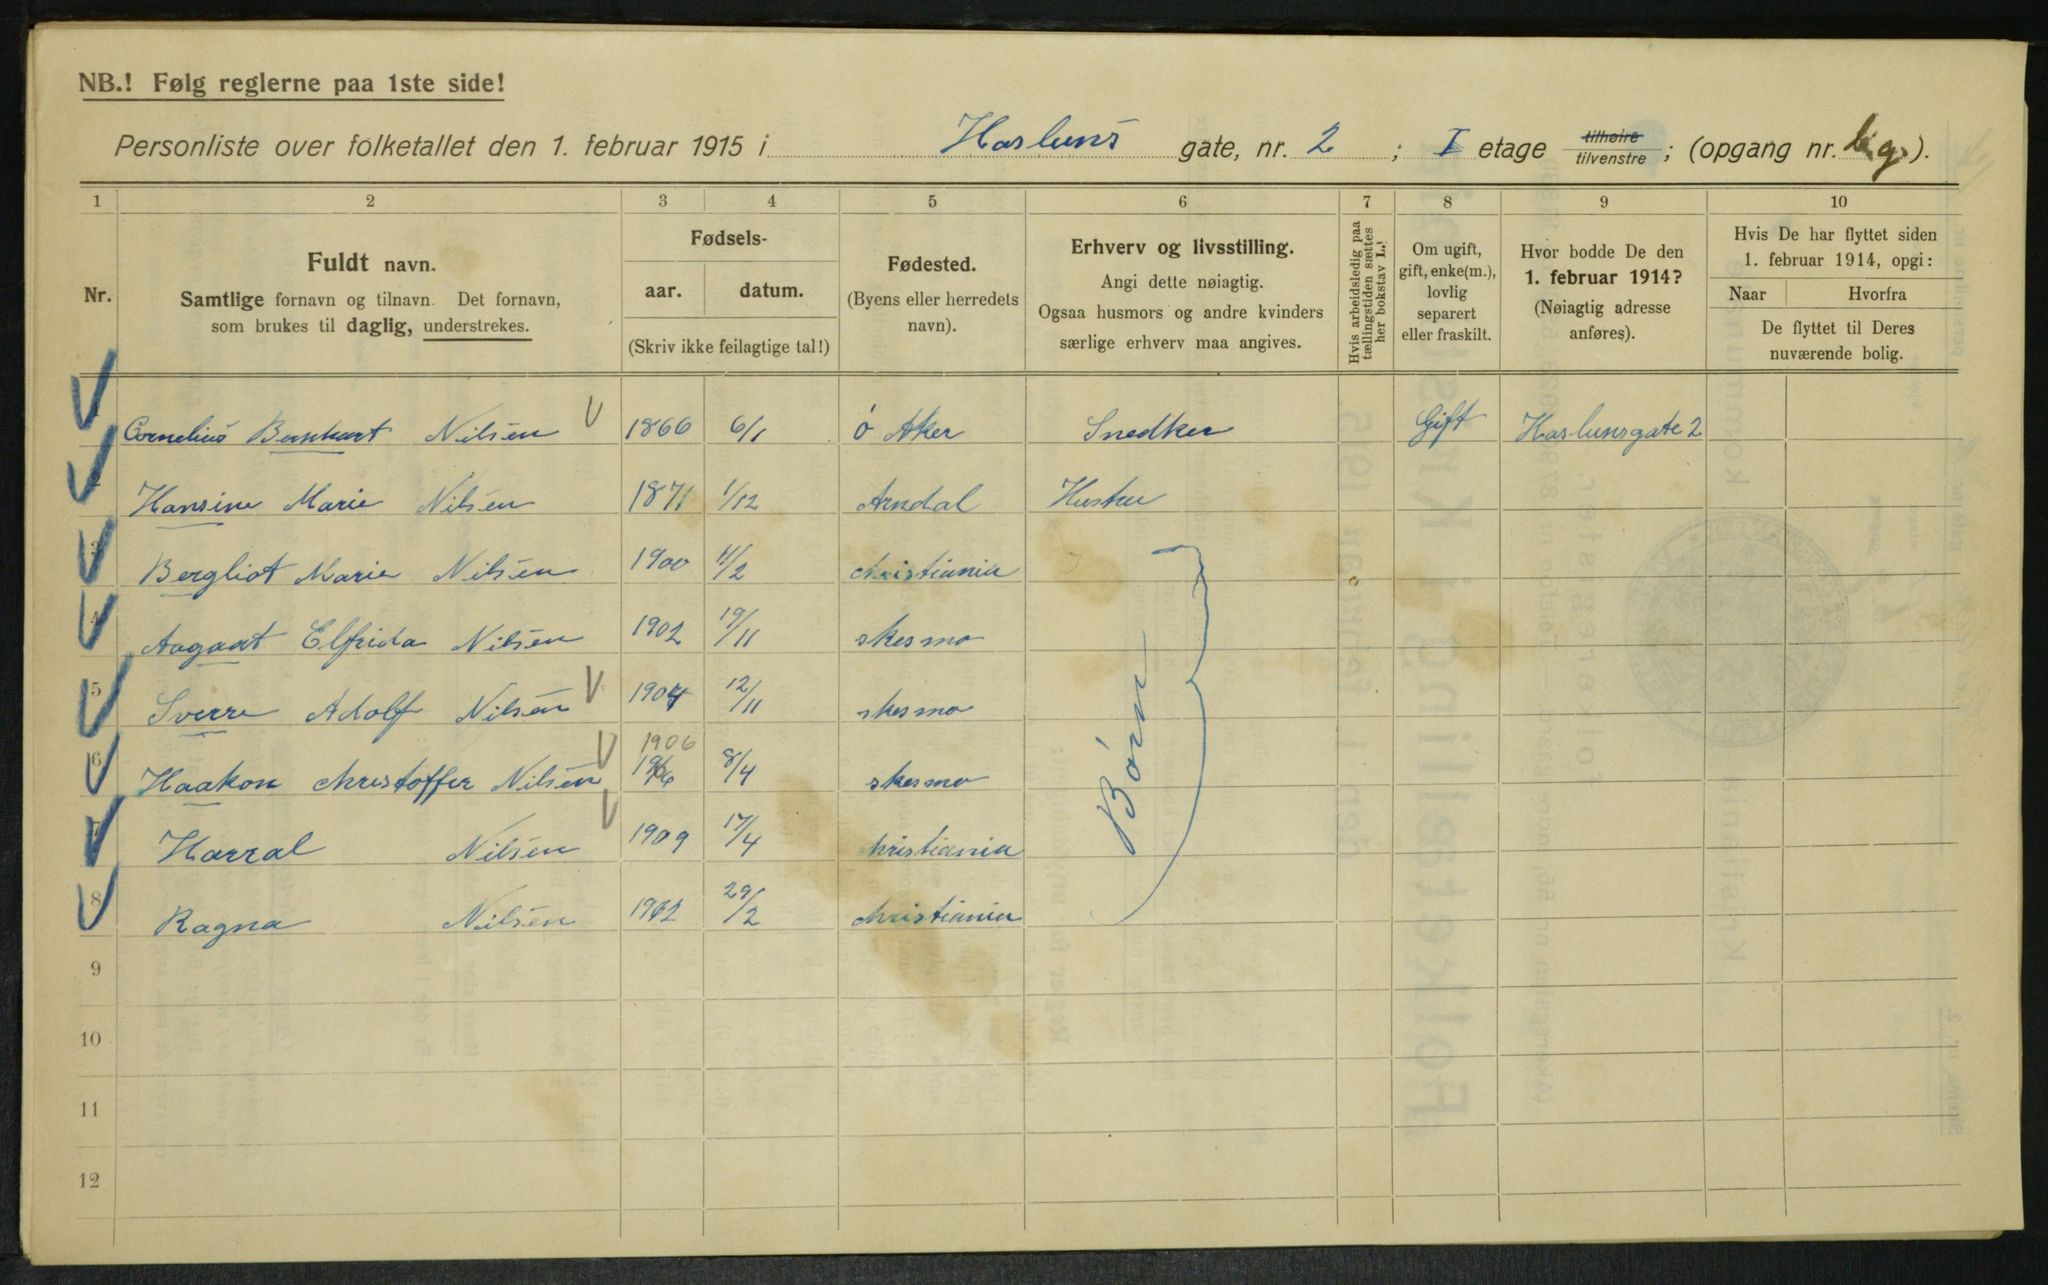 NB.! Følg reglerne paa 1ste side!
Personliste over folketallet den 1. februar 1915 i Hasluns gate, nr. 2 ; I etage tilhøire tilvenstre ; (opgang nr. ).
1 2 3 4 5 6 7 8 9 10
Nr.
Fuldt navn.
Samtlige fornavn og tilnavn. Det fornavn,
som brukes til daglig, understrekes.
Fødsels-
aar. datum.
(Skriv ikke feilagtige tal!)
Fødested.
(Byens eller herredets
navn).
Erhverv og livsstilling.
Angi dette nøiagtig.
Ogsaa husmors og andre kvinders
særlige erhverv maa angives.
Hvis arbeidsledig paa
tællingstiden sættes
her bokstav L.!
Om ugift,
gift, enke(m.),
lovlig
separert
eller fraskilt.
Hvor bodde De den
1. februar 1914?
(Nøiagtig adresse
anføres).
Hvis De har flyttet siden
1. februar 1914, opgi:
Naar Hvorfra
De flyttet til Deres
nuværende bolig.
1 Cornelius Bernhart Nilsen 1866 6/1 Ö Aker Snedker Gift Haslunsgate 2
2 Hansine Marie Nilsen 1871 1/12 Arndal Hustru
3 Bergliot Marie Nilsen 1900 11/2 christiania
4 Aagaat Elfrida Nilsen 1902 19/11 skesmo
5 Sverre Adolf Nilsen 1904 12/11 skesmo
1906
6 Haakon christoffer Nilsen 1906 8/4 skesmo
7 Harral Nilsen 1909 17/4 christiania
8 Ragna Nilsen 1912 29/2 christiania
Börn
9
10
11
12